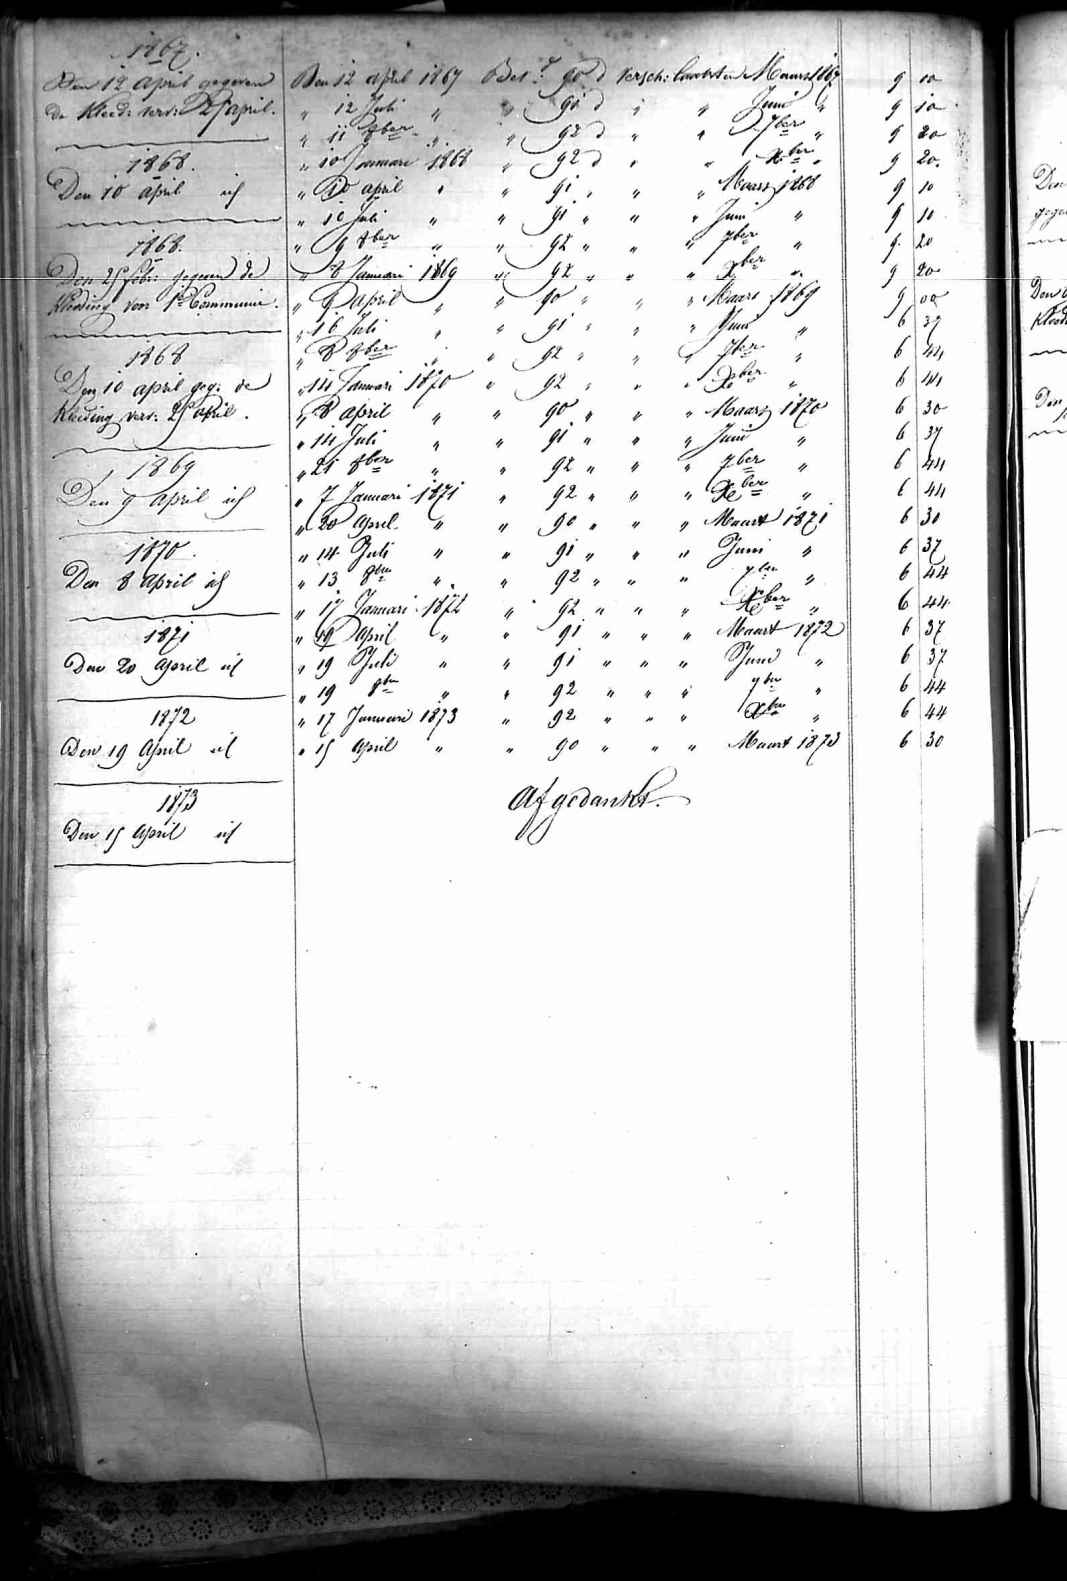 1867.
Den 12 april gegeven
de Kleed: verv: 25 april.
1868.
Den 10 april id
1868.
Den 25 febr: gegeven de
Kleeding voor 1e Communie.
1868
Den 10 april geg: de
Kleeding verv: 25 april.
1869
Den 9 april id
1870.
Den 8 april id
1871
Den 20 april id
1872
Den 19 April id
1873
Den 15 April id
Den 12 april 1867 Bet.d 90 d versch: Maart 1867 9 10
" 12 Juli " " 91 d " " Juni " 9 10
" 11 8ber " " 92 d " " 7ber " 9 20
" 10 Januari 1868 " 92 d " " Xber " 9 20
" 10 april " " 91 " " " Maart 1868 9 10
" 10 Juli " " 91 " " " Juni " 9 10
" 9 8ber " " 92 " " " 7ber " 9 20
" 8 Januari 1869 " 92 " " " Xber " 9 20
" 9 April " " 90 " " " Maart 1869 9 00
" 16 Juli " " 91 " " " Juni " 6 37
" 8 8ber " " 92 " " " 7ber " 6 44
" 14 Januari 1870 " 92 " " " Xber " 6 44
" 8 april " " 90 " " " Maart 1870 6 30
" 14 Juli " " 91 " " " Juni " 6 37
" 21 8ber " " 92 " " " 7ber " 6 44
" 7 Januari 1871 " 92 " " " Xber " 6 44
" 20 April " " 90 " " " Maart 1871 6 30
" 14 Juli " " 91 " " " Juni " 6 37
" 13 8ber " " 92 " " " 7ber " 6 44
" 17 Januari 1872 " 92 " " " Xber " 6 44
" 19 April " " 91 " " " Maart 1872 6 37
" 19 Juli " " 91 " " " Juni " 6 37
" 19 8ber " " 92 " " " 7ber " 6 44
" 17 Januari 1873 " 92 " " " Xber " 6 44
" 15 April " " 90 " " " Maart 1873 6 30
Afgedankt.